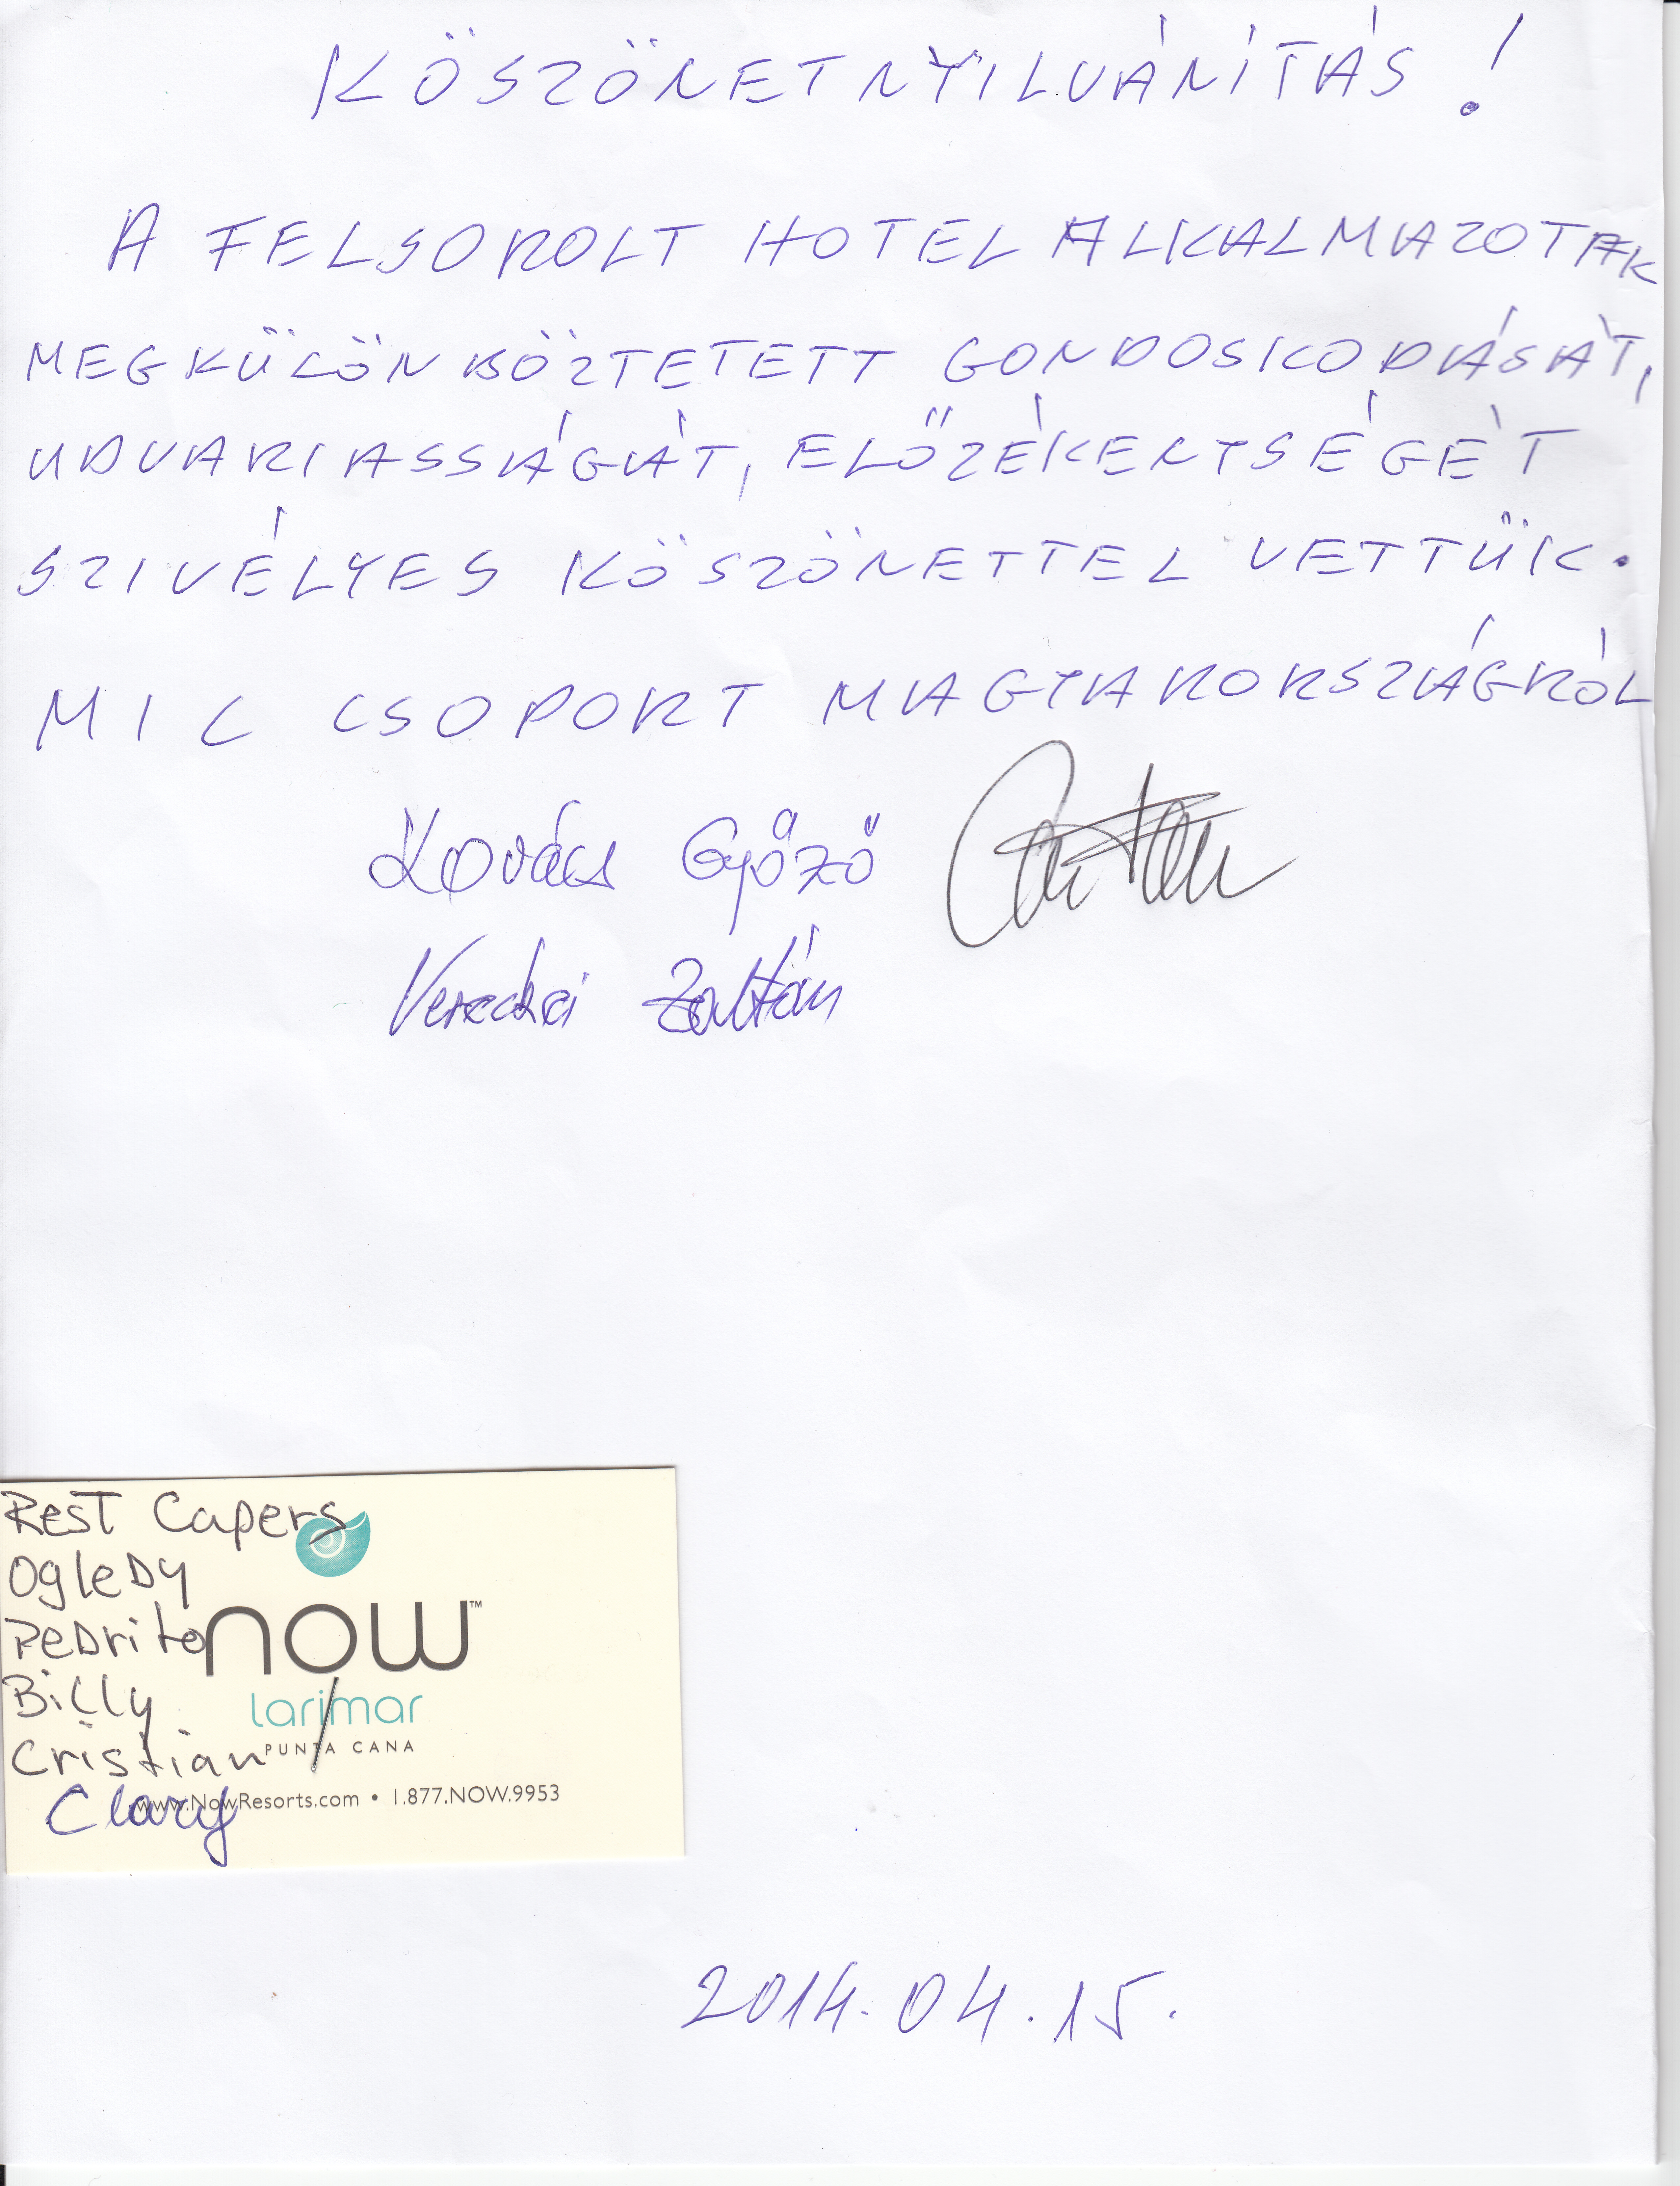 KÖSZÖNETNYILVÁNÍTÁS!
A FELSOROLT HOTEL ALKALMAZOTAK
MEGKÜLÖNBÖZTETETT GONDOSKODÁSÁT,
UDVARIASSÁGÁT, ELŐZÉKENYSÉGÉT
SZIVÉLYES KÖSZÖNETTEL VETTÜK.
MIL CSOPORT MAGYARORSZÁGRÓL
Kovács Győző
Vereckei Zoltán
Rest Capers
Ogledy
Pedrito
Billy
Cristian
Clary
now™
larimar
PUNTA CANA
www.NowResorts.com • 1.877.NOW.9953
2014.04.15.